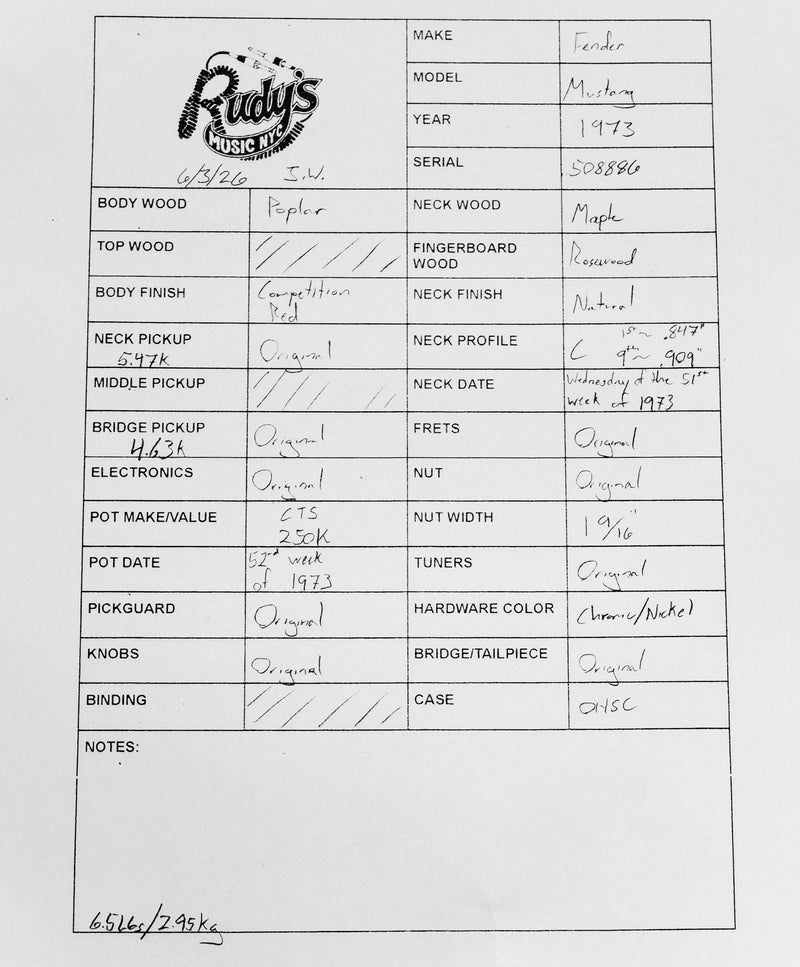 MAKE Fender
MODEL Mustang
Rudy's
MUSIC NYC
YEAR 1973
6/3/26 J.W.
SERIAL 508886
BODY WOOD Poplar NECK WOOD Maple
TOP WOOD FINGERBOARD WOOD Rosewood
BODY FINISH Competition Red NECK FINISH Natural
NECK PICKUP 5.47K Original NECK PROFILE C 1st ~ .847" 9th ~ .909"
MIDDLE PICKUP NECK DATE Wednesday of the 51st week of 1973
BRIDGE PICKUP 4.63K Original FRETS Original
ELECTRONICS Original NUT Original
POT MAKE/VALUE CTS 250K NUT WIDTH 1 9/16"
POT DATE 52nd week of 1973 TUNERS Original
PICKGUARD Original HARDWARE COLOR Chrome/Nickel
KNOBS Original BRIDGE/TAILPIECE Original
BINDING CASE OHSC
NOTES:
6.5Lbs/2.95Kg